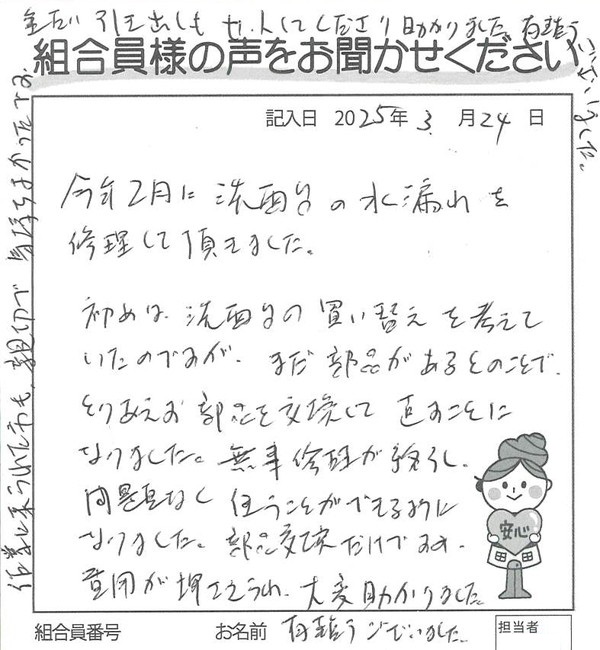 組合員様の声をお聞かせください
記入日 2025年 3月24日
今年2月に洗面台の水漏れを
修理して頂きました。
初めは洗面台の買い替えを考えて
いたのですが、まだ部品があるとのことで、
とりあえず部品を交換して直すことに
なりました。無事修理が終り、
問題なく使うことができるように
なりました。部品交換だけですみ、
費用が押さえられ、大変助かりました。
有難うございました。
安心
組合員番号 お名前 担当者
作業に来られた方も、親切で気持ちよかったです。
引き出しも してくださり助かりました。有難う
ございました。